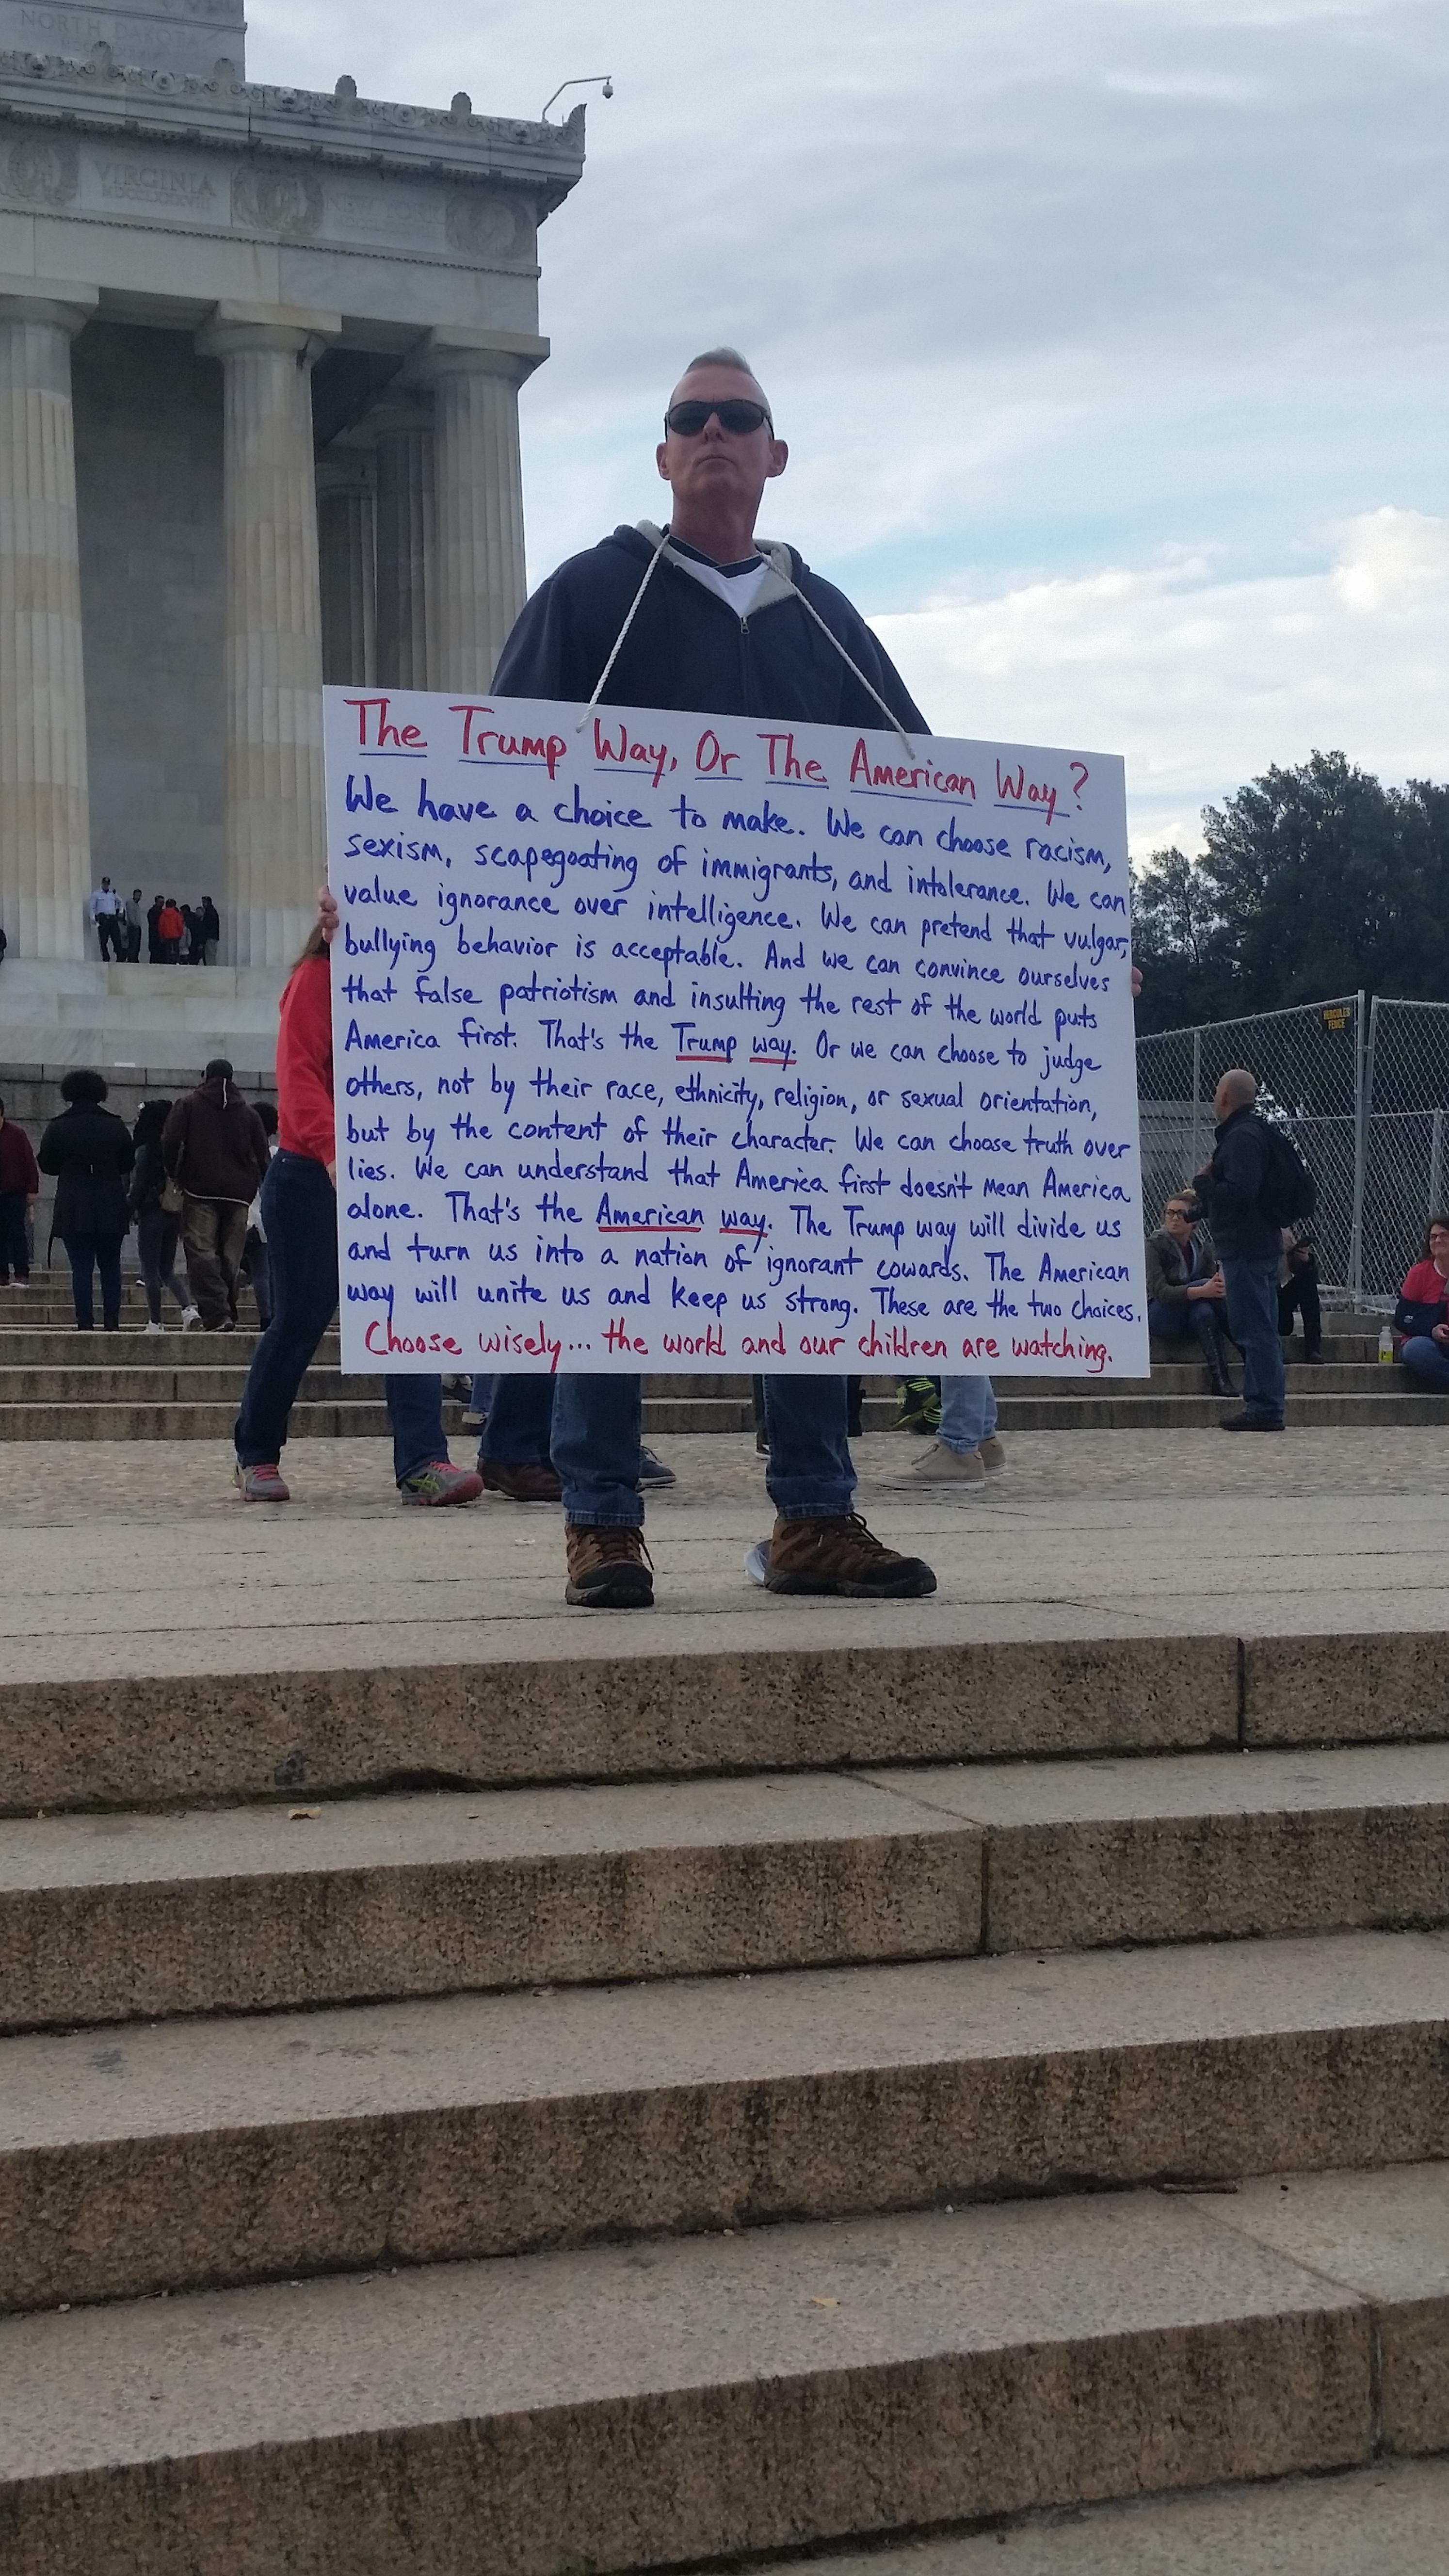 NORTH DAKOTA
VIRGINIA
The Trump Way, Or The American Way?
We have a choice to make. We can choose racism,
sexism, scapegoating of immigrants, and intolerance. We can
value ignorance over intelligence. We can pretend that vulgar,
bullying behavior is acceptable. And we can convince ourselves
that false patriotism and insulting the rest of the world puts
America first. That's the Trump way. Or we can choose to judge
others, not by their race, ethnicity, religion, or sexual orientation,
but by the content of their character. We can choose truth over
lies. We can understand that America first doesn't mean America
alone. That's the American way. The Trump way will divide us
and turn us into a nation of ignorant cowards. The American
way will unite us and keep us strong. These are the two choices.
Choose wisely... the world and our children are watching.
HERCULES
FENCE